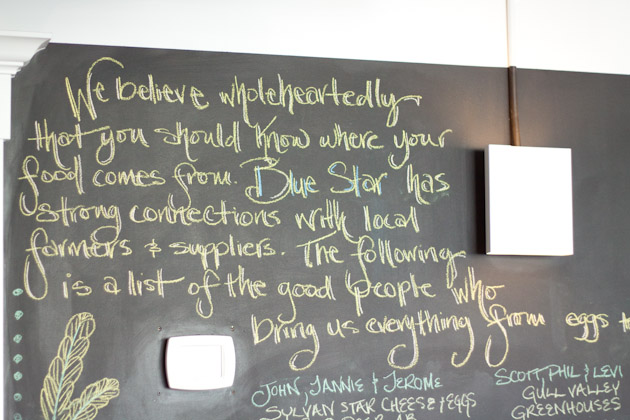 We believe wholeheartedly
that you should know where your
food comes from. Blue Star has
strong connections with local
farmers & suppliers. The following
is a list of the good people who
bring us everything from eggs
JOHN, JANNIE & JEROME
SYLVAN STAR CHEESE & EGGS
SCOTT, PHIL & LEVI
GULL VALLEY
GREENHOUSES